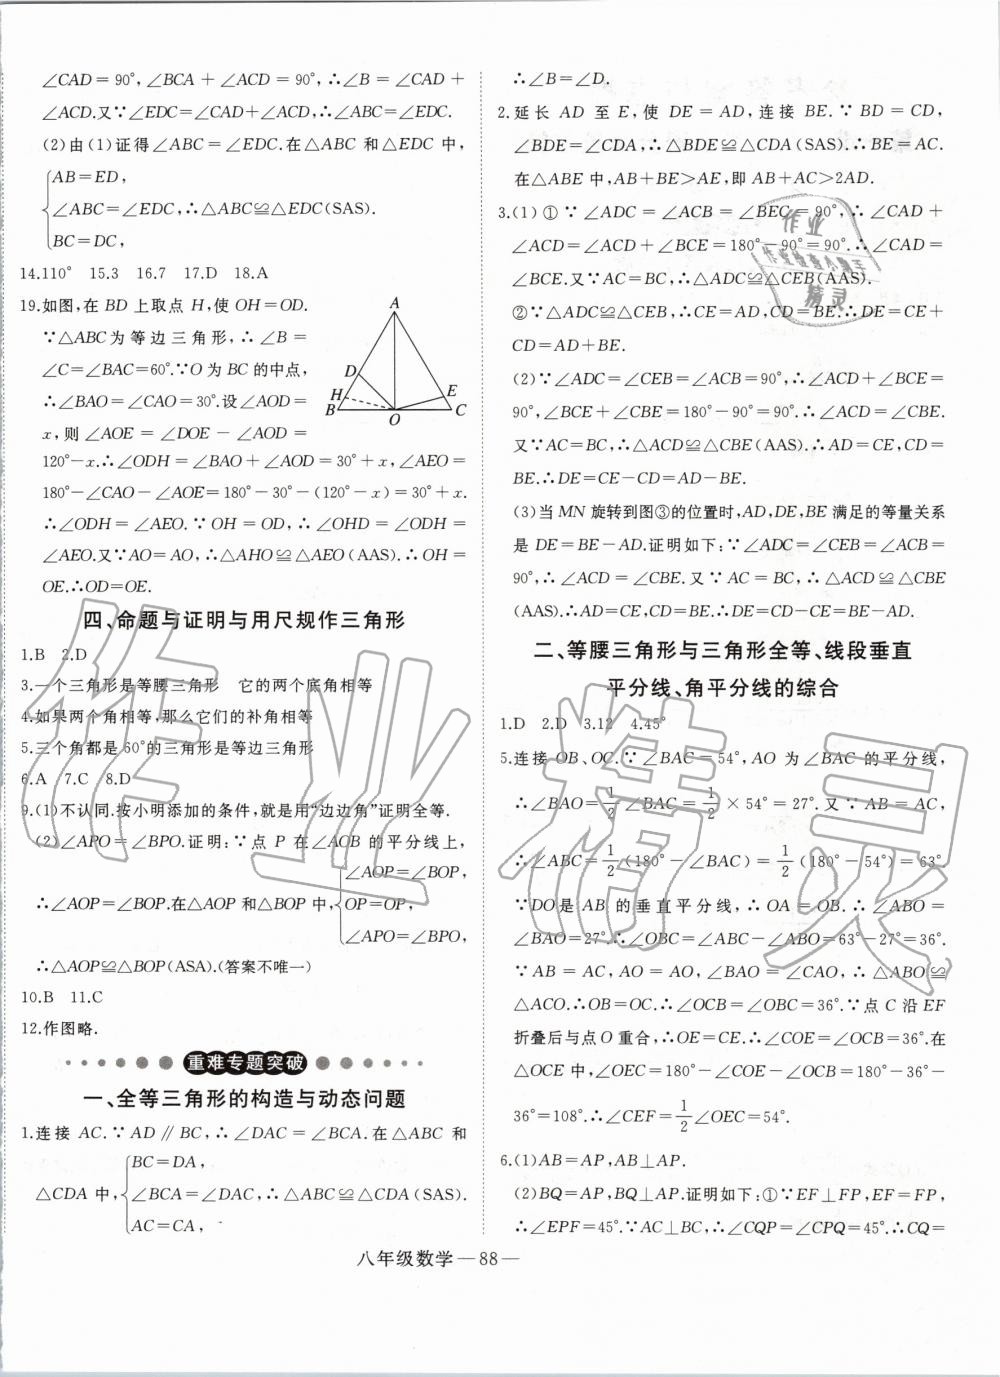 ∠CAD=90°,∠BCA+∠ACD=90°,∴∠B=∠CAD+
∠ACD.又∵∠EDC=∠CAD+∠ACD,∴∠ABC=∠EDC.
(2)由(1)证得∠ABC=∠EDC.在△ABC 和△EDC 中,
AB=ED,
∠ABC=∠EDC,∴△ABC≌△EDC(SAS).
BC=DC,
14.110° 15.3 16.7 17.D 18.A
19.如图,在 BD 上取点 H,使 OH=OD.
∵△ABC 为等边三角形,∴∠B=
∠C=∠BAC=60°.∵O 为 BC 的中点,
∴∠BAO=∠CAO=30°.设∠AOD=
x,则∠AOE=∠DOE-∠AOD=
120°-x.∴∠ODH=∠BAO+∠AOD=30°+x,∠AEO=
180°-∠CAO-∠AOE=180°-30°-(120°-x)=30°+x.
∴∠ODH=∠AEO.∵OH=OD,∴∠OHD=∠ODH=
∠AEO.又∵AO=AO,∴△AHO≌△AEO(AAS).∴OH=
OE.∴OD=OE.
A
D
H
E
B
O
C
四、命题与证明与用尺规作三角形
1.B 2.D
3.一个三角形是等腰三角形 它的两个底角相等
4.如果两个角相等,那么它们的补角相等
5.三个角都是60°的三角形是等边三角形
6.A 7.C 8.D
9.(1)不认同.按小明添加的条件,就是用“边边角”证明全等.
(2)∠APO=∠BPO.证明:∵点 P 在∠AOB 的平分线上,
∠AOP=∠BOP,
∴∠AOP=∠BOP.在△AOP 和△BOP 中,OP=OP,
∠APO=∠BPO,
∴△AOP≌△BOP(ASA).(答案不唯一)
10.B 11.C
12.作图略.
重难专题突破
一、全等三角形的构造与动态问题
1.连接 AC.∵AD∥BC,∴∠DAC=∠BCA.在△ABC 和
BC=DA,
△CDA 中,∠BCA=∠DAC,∴△ABC≌△CDA(SAS).
AC=CA,
∴∠B=∠D.
2.延长 AD 至 E,使 DE=AD,连接 BE.∵BD=CD,
∠BDE=∠CDA,∴△BDE≌△CDA(SAS).∴BE=AC.
在△ABE 中,AB+BE>AE,即 AB+AC>2AD.
3.(1)①∵∠ADC=∠ACB=∠BEC=90°,∴∠CAD+
∠ACD=∠ACD+∠BCE=180°-90°=90°.∴∠CAD=
∠BCE.又∵AC=BC,∴△ADC≌△CEB(AAS).
②∵△ADC≌△CEB,∴CE=AD,CD=BE.∴DE=CE+
CD=AD+BE.
(2)∵∠ADC=∠CEB=∠ACB=90°,∴∠ACD+∠BCE=
90°,∠BCE+∠CBE=180°-90°=90°.∴∠ACD=∠CBE.
又∵AC=BC,∴△ACD≌△CBE(AAS).∴AD=CE,CD=
BE.∴DE=CE-CD=AD-BE.
(3)当 MN 旋转到图③的位置时,AD,DE,BE 满足的等量关系
是 DE=BE-AD.证明如下:∵∠ADC=∠CEB=∠ACB=
90°,∴∠ACD=∠CBE.又∵AC=BC,∴△ACD≌△CBE
(AAS).∴AD=CE,CD=BE.∴DE=CD-CE=BE-AD.
二、等腰三角形与三角形全等、线段垂直
平分线、角平分线的综合
1.D 2.D 3.12 4.45°
5.连接 OB、OC.∵∠BAC=54°,AO 为∠BAC 的平分线,
∴∠BAO=1/2∠BAC=1/2×54°=27°.又∵AB=AC,
∴∠ABC=1/2(180°-∠BAC)=1/2(180°-54°)=63°.
∵DO是 AB 的垂直平分线,∴OA=OB.∴∠ABO=
∠BAO=27°.∴∠OBC=∠ABC-∠ABO=63°-27°=36°.
∵AB=AC,AO=AO,∠BAO=∠CAO,∴△ABO≌
△ACO.∴OB=OC.∴∠OCB=∠OBC=36°.∵点 C 沿 EF
折叠后与点 O 重合,∴OE=CE.∴∠COE=∠OCB=36°.在
△OCE 中,∠OEC=180°-∠COE-∠OCB=180°-36°-
36°=108°.∴∠CEF=1/2∠OEC=54°.
6.(1)AB=AP,AB⊥AP.
(2)BQ=AP,BQ⊥AP.证明如下:①∵EF⊥FP,EF=FP,
∴∠EPF=45°.∵AC⊥BC,∴∠CQP=∠CPQ=45°.∴CQ=
八年级数学—88—
作业
作业检查小助手
精灵
作业精灵